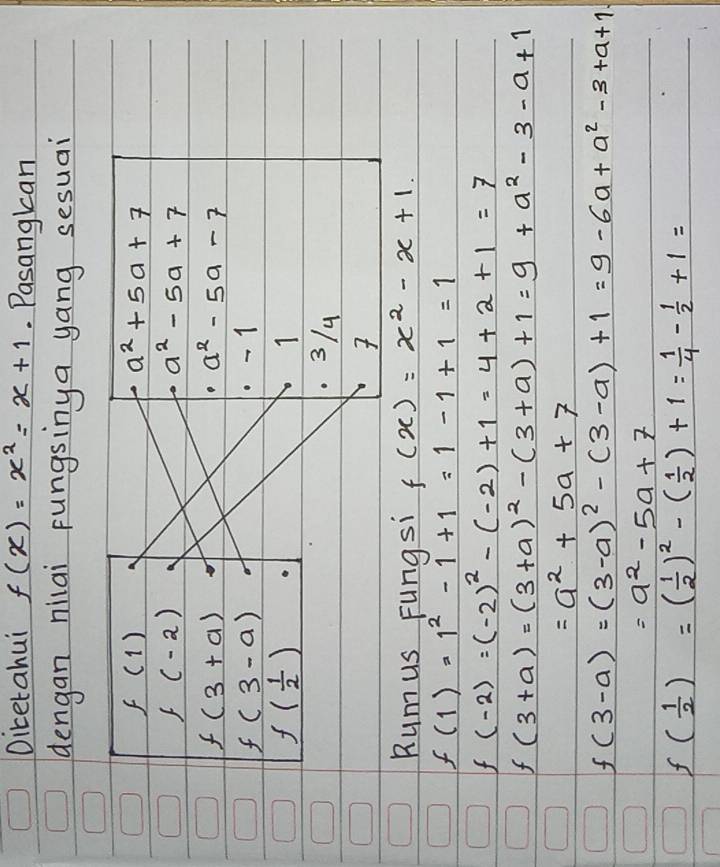 Diketahui f(x) = x² = x + 1. Pasangkan
dengan nilai fungsinya yang sesuai
f (1)
f (-2)
f (3 + a)
f (3 - a)
f (1/2)
a² + 5a + 7
a² - 5a + 7
a² - 5a - 7
-1
1
3/4
7
Rumus fungsi f (x) = x² - x + 1.
f (1) = 1² - 1 + 1 = 1 - 1 + 1 = 1
f (-2) = (-2)² - (-2) + 1 = 4 + 2 + 1 = 7
f (3+a) = (3+a)² - (3+a) + 1 = 9 + a² - 3 - a + 1
= a² + 5a + 7
f (3-a) = (3-a)² - (3-a) + 1 = 9 - 6a + a² - 3 + a + 1.
= a² - 5a + 7
f (1/2) = (1/2)² - (1/2) + 1 = 1/4 - 1/2 + 1 =